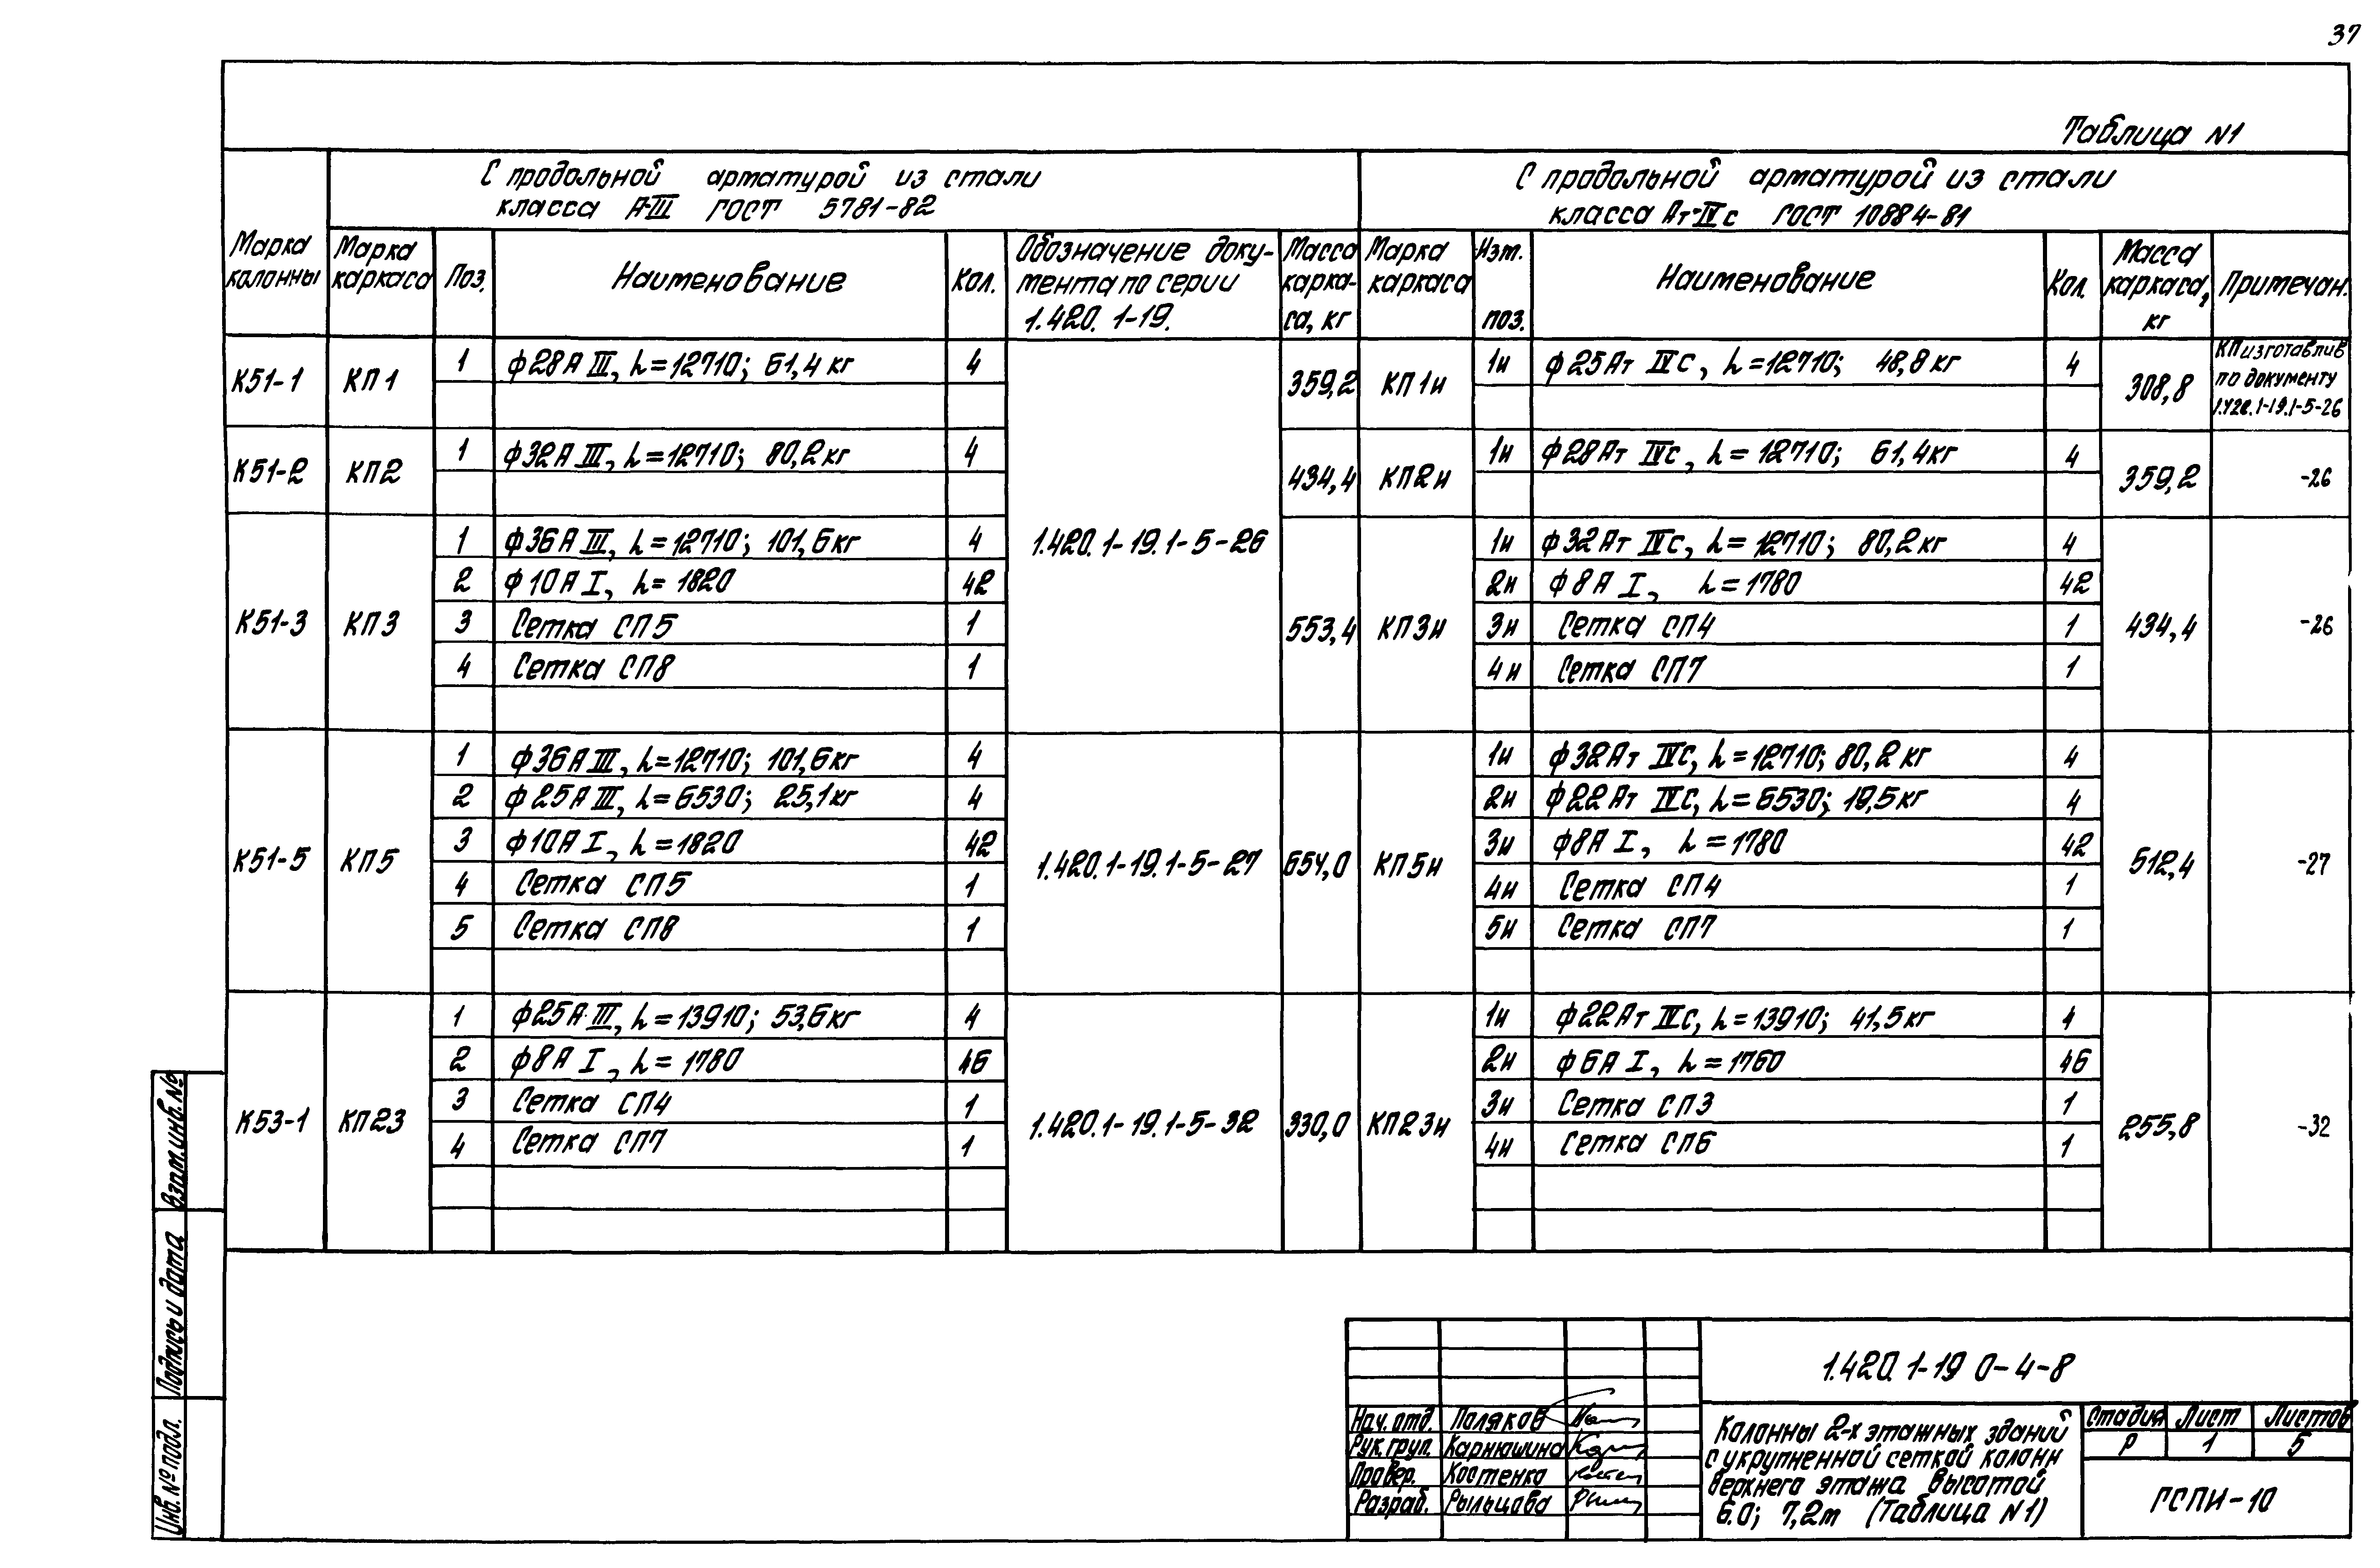 37
Таблица N1
С продольной арматурой из стали
класса А-III ГОСТ 5781-82
С продольной арматурой из стали
класса Ат-IVс ГОСТ 10884-81
Марка колонны
Марка каркаса
Поз.
Наименование
Кол.
Обозначение доку-
мента по серии
1.420.1-19.
Масса
карка-
са, кг
Марка каркаса
Изм.
поз.
Наименование
Кол.
Масса
каркаса,
кг
Примечан.
К51-1 КП1 1 ф28А III, L=12710; 61,4кг 4 359,2 КП1и 1и ф25Ат IVС, L=12710; 48,8кг 4 308,8
КП изготавлив
по документу
1.420.1-19.1-5-26
К51-2 КП2 1 ф32А III, L=12710; 80,2кг 4 434,4 КП2и 1и ф28Ат IVс, L=12710; 61,4кг 4 359,2 -26
1.420.1-19.1-5-26
К51-3 КП3 553,4 КП3и 434,4 -26
1 ф36А III, L=12710; 101,6кг 4 1и ф32Ат IVс, L=12710; 80,2кг 4
2 ф10А I, L=1820 42 2и ф8А I, L=1780 42
3 Сетка СП5 1 3и Сетка СП4 1
4 Сетка СП8 1 4и Сетка СП7 1
К51-5 КП5 1.420.1-19.1-5-27 654,0 КП5и 512,4 -27
1 ф36А III, L=12710; 101,6кг 4 1и ф32Ат IVС, L=12710; 80,2кг 4
2 ф25А III, L=6530; 25,1кг 4 2и ф22Ат IVС, L=6530; 19,5кг 4
3 ф10А I, L=1820 42 3и ф8А I, L=1780 42
4 Сетка СП5 1 4и Сетка СП4 1
5 Сетка СП8 1 5и Сетка СП7 1
К53-1 КП23 1.420.1-19.1-5-32 330,0 КП23и 255,8 -32
1 ф25А III, L=13910; 53,6кг 4 1и ф22Ат IVС, L=13910; 41,5кг 4
2 ф8А I, L=1780 46 2и ф6А I, L=1760 46
3 Сетка СП4 1 3и Сетка СП3 1
4 Сетка СП7 1 4и Сетка СП6 1
Взам.инв.№
Подпись и дата
Инв.№ подл.
1.420.1-19 0-4-8
Нач.отд. Поляков
Рук.груп. Карнюшина
Провер. Костенко
Разраб. Рыльцова
Колонны 2-х этажных зданий
с укрупненной сеткой колонн
верхнего этажа высотой
6.0; 7,2м (Таблица N1)
Стадия Лист Листов
Р 1 5
ГСПИ-10